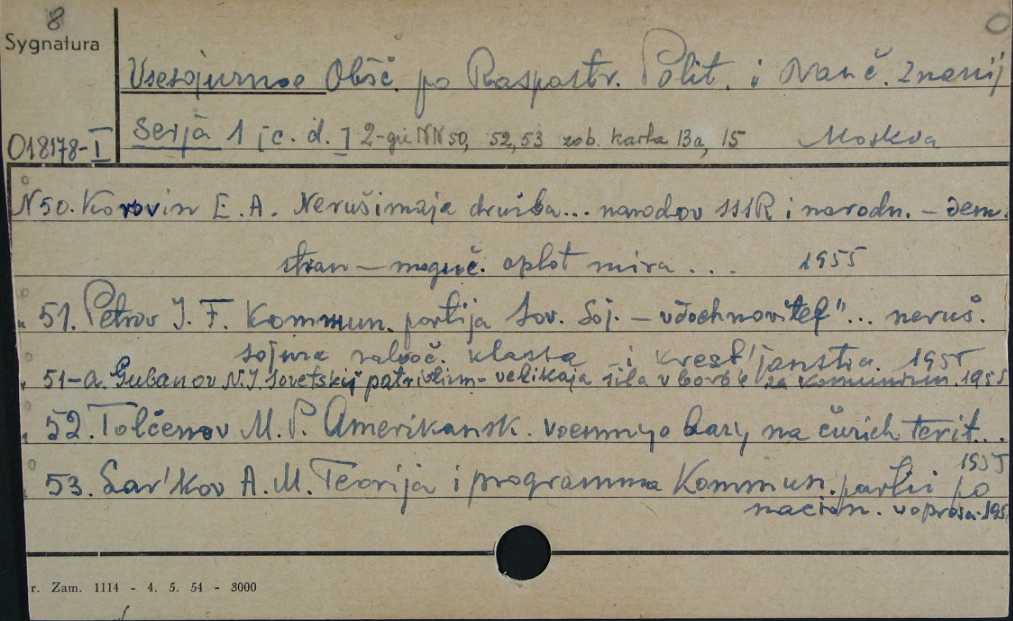 8
Sygnatura
Vsesojuznoe Obšč. po Rasprostr. Polit. i Nauč. Znanij
Serja 1 [c. d.] 2-gie NN 50, 52, 53 zob. karta 13a, 15 Moskva
018178-I
N50. Korovin E. A. Nerušimaja družba... narodov SSSR i narodn. - dem.
stran - moguč. oplot mira... 1955
" 51. Petrov J. F. Kommun. partija Sov. Soj. - vdochnovitel"... neruš.
sojuza raboč. klassa i krest'janstva. 1955
" 51-a. Gubanov N. J. Sovetskij patriotizm - velikaja sila v bor'be za komunizm. 1955
" 52. Tolčenov M. P. Amerikansk. voennye bazy na čužich territ...
1955
" 53. Sar'kov A. M. Teorija i programma Kommun. partii po
nacion. voprosu. 195
r. Zam. 1114 - 4. 5. 54 - 3000